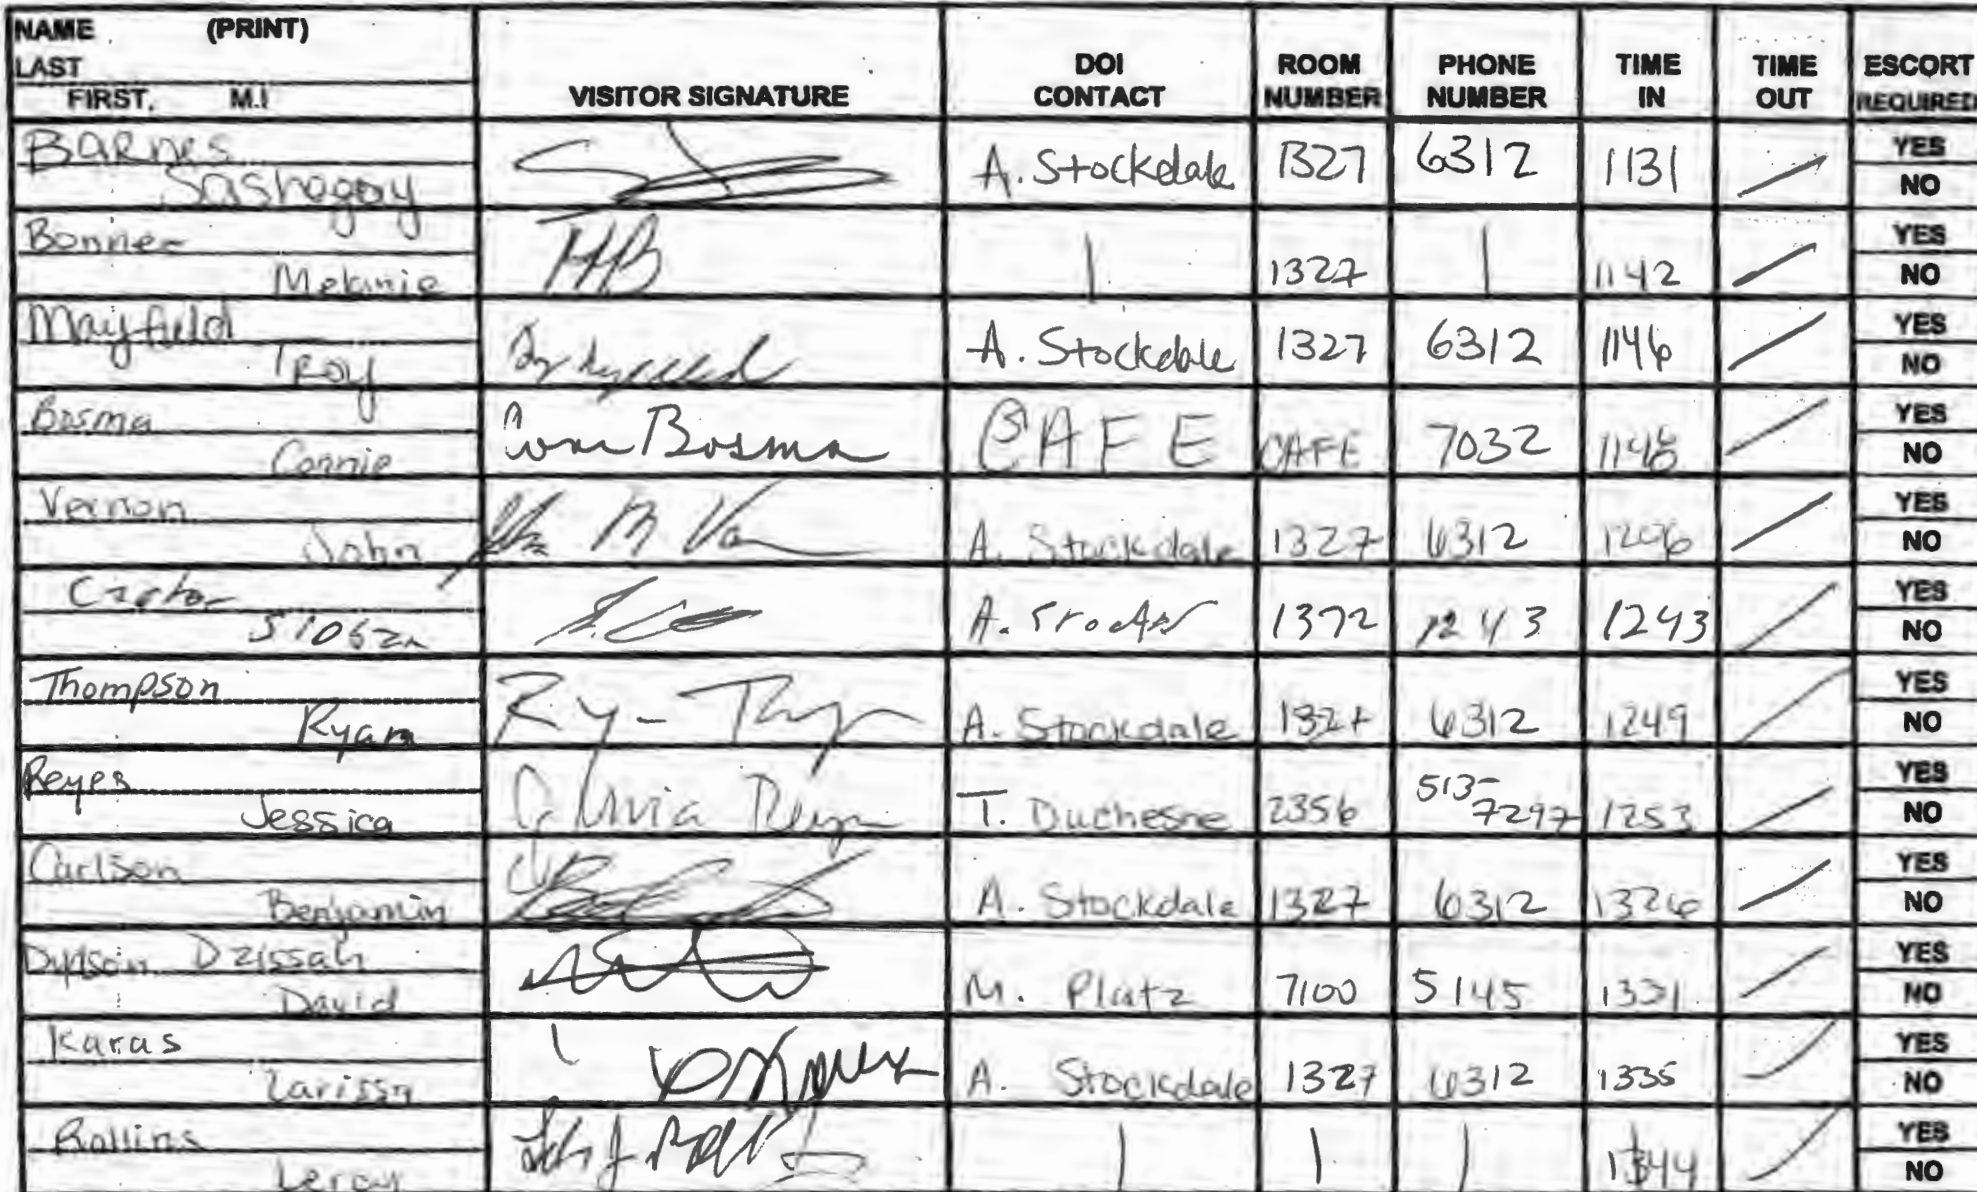 NAME (PRINT)
LAST
FIRST, M.I
VISITOR SIGNATURE
DOI CONTACT
ROOM NUMBER
PHONE NUMBER
TIME IN
TIME OUT
ESCORT REQUIRED
Barnes
A. Stockdale 1327 6312 1131 YES
NO
Bonner
Melanie 1327 1142 YES
NO
Mayfield
A. Stockdale 1327 6312 1146 YES
Roy NO
Bosma
Bosma CAFE CAFE 7032 YES
Connie NO
Vernon
John A. Stockdale 1327 6312 YES
NO
A. 1372 1243 YES
NO
Thompson
Ryan A. Stockdale 6312 1249 YES
NO
Reyes
Jessica T. Duchesne 2356 513-7297 1253 YES
NO
Carlson
Benjamin A. Stockdale 1327 6312 1326 YES
NO
Dzissah
David M. Platz 7100 5145 1331 YES
NO
Karas
Larissa A. Stockdale 1327 6312 1335 YES
NO
Rollins
Leroy 1344 YES
NO